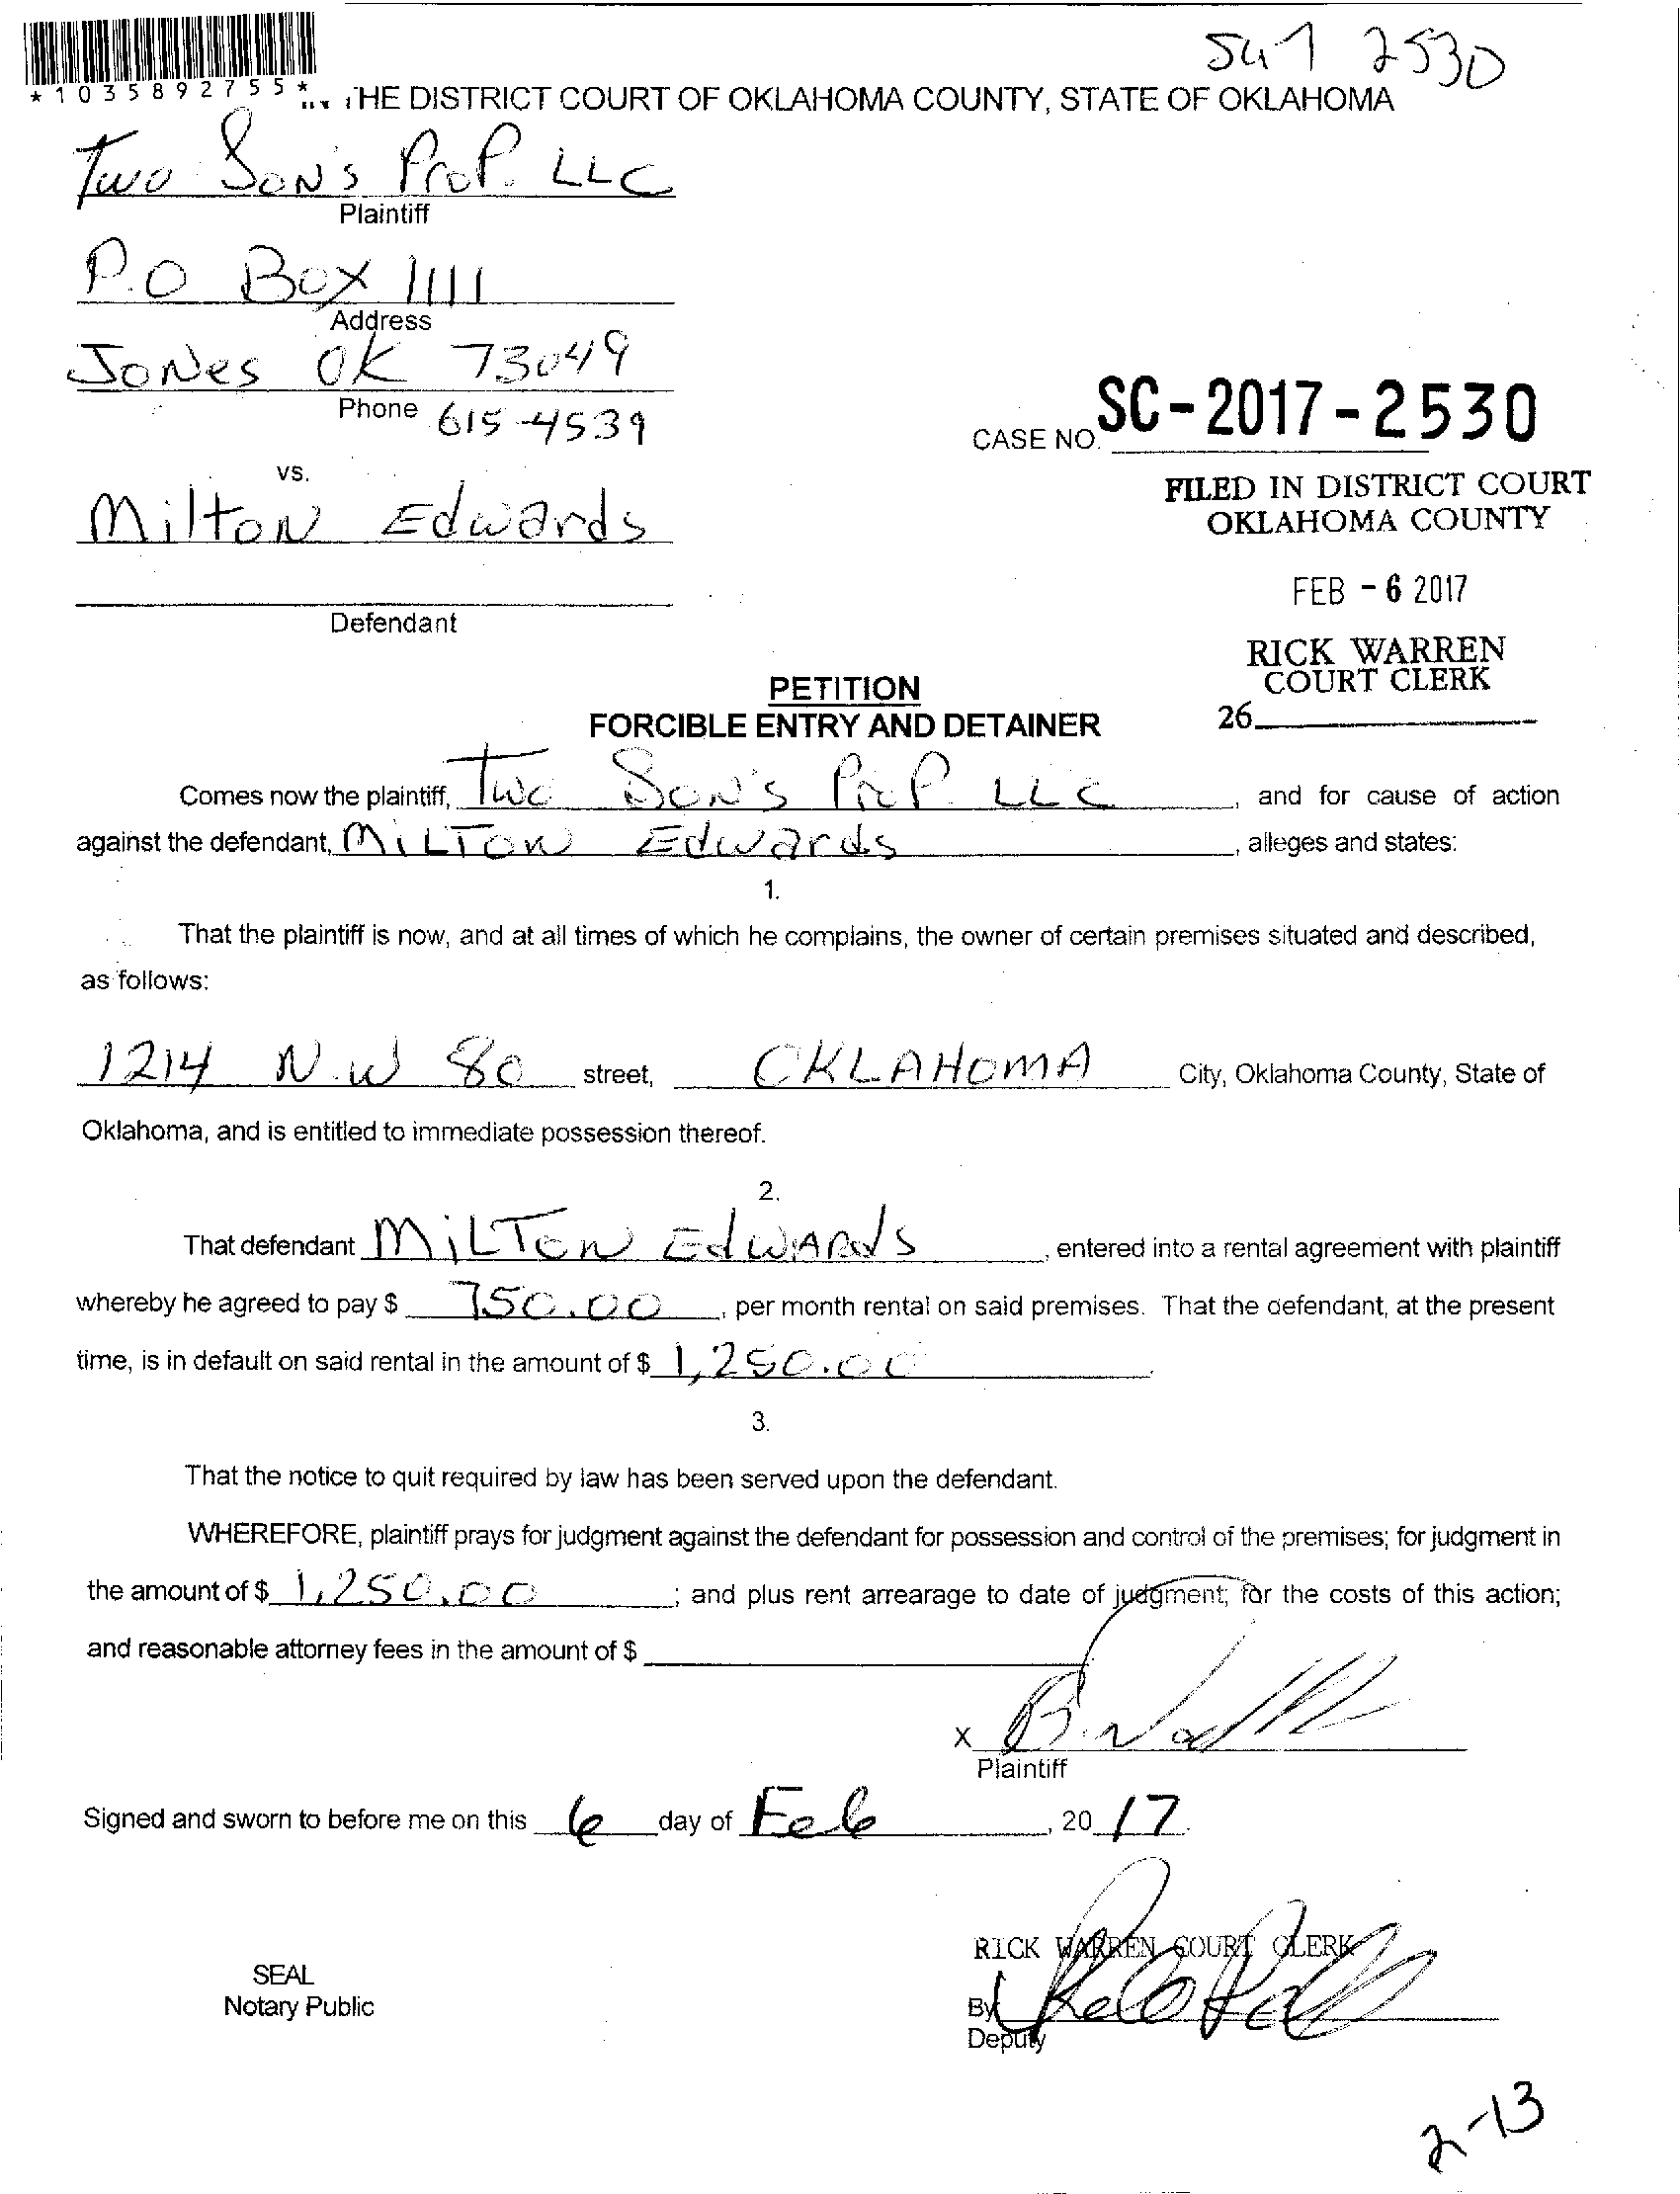 2530
*1035892755*
THE DISTRICT COURT OF OKLAHOMA COUNTY, STATE OF OKLAHOMA
Two Son's Prop. LLC
Plaintiff
P.O Box 1111
Address
Jones OK 73049
Phone 615-4539
CASE NO. SC-2017-2530
vs.
Milton Edwards
FILED IN DISTRICT COURT
OKLAHOMA COUNTY
FEB - 6 2017
Defendant
RICK WARREN
COURT CLERK
26
PETITION
FORCIBLE ENTRY AND DETAINER
Comes now the plaintiff, Two Son's Prop. LLC, and for cause of action
against the defendant, Milton Edwards, alleges and states:
1.
That the plaintiff is now, and at all times of which he complains, the owner of certain premises situated and described,
as follows:
1214 N.W 80 street, OKLAHOMA City, Oklahoma County, State of
Oklahoma, and is entitled to immediate possession thereof.
2.
That defendant Milton Edwards, entered into a rental agreement with plaintiff
whereby he agreed to pay $ 750.00, per month rental on said premises. That the defendant, at the present
time, is in default on said rental in the amount of $ 1,250.00.
3.
That the notice to quit required by law has been served upon the defendant.
WHEREFORE, plaintiff prays for judgment against the defendant for possession and control of the premises; for judgment in
the amount of $ 1,250.00; and plus rent arrearage to date of judgment; for the costs of this action;
and reasonable attorney fees in the amount of $
X
Plaintiff
Signed and sworn to before me on this 6 day of Feb, 20 17.
RICK WARREN COURT CLERK
SEAL
Notary Public
By
Deputy
2-13